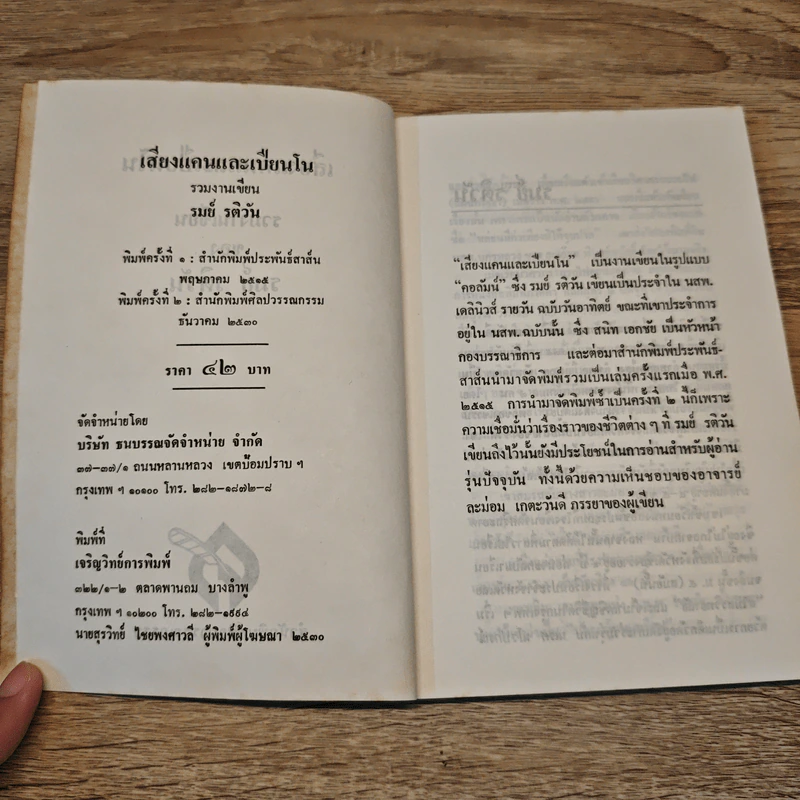 เสียงแคนและเปียนโน
รวมงานเขียน
รมย์ รติวัน
พิมพ์ครั้งที่ ๑ : สำนักพิมพ์ประพันธ์สาส์น
พฤษภาคม ๒๕๑๕
พิมพ์ครั้งที่ ๒ : สำนักพิมพ์ศิลปวรรณกรรม
ธันวาคม ๒๕๓๐
ราคา ๔๒ บาท
จัดจำหน่ายโดย
บริษัท ธนบรรณจัดจำหน่าย จำกัด
๓๗-๓๗/๑ ถนนหลานหลวง เขตป้อมปราบ ฯ
กรุงเทพ ฯ ๑๐๑๐๐ โทร. ๒๘๒-๑๘๗๒-๘
พิมพ์ที่
เจริญวิทย์การพิมพ์
๓๒๒/๑-๒ ตลาดพานถม บางลำพู
กรุงเทพ ฯ ๑๐๒๐๐ โทร. ๒๘๒-๑๙๙๔
นายสุรวิทย์ ไชยพงศาวลี ผู้พิมพ์ผู้โฆษณา ๒๕๓๐
"เสียงแคนและเปียนโน" เป็นงานเขียนในรูปแบบ
"คอลัมน์" ซึ่ง รมย์ รติวัน เขียนเป็นประจำใน นสพ.
เดลินิวส์ รายวัน ฉบับวันอาทิตย์ ขณะที่เขาประจำการ
อยู่ใน นสพ. ฉบับนั้น ซึ่ง สนิท เอกชัย เป็นหัวหน้า
กองบรรณาธิการ และต่อมาสำนักพิมพ์ประพันธ์-
สาส์นนำมาจัดพิมพ์รวมเป็นเล่มครั้งแรกเมื่อ พ.ศ.
๒๕๑๕ การนำมาจัดพิมพ์ซ้ำเป็นครั้งที่ ๒ นี้ก็เพราะ
ความเชื่อมั่นว่าเรื่องราวของชีวิตต่าง ๆ ที่ รมย์ รติวัน
เขียนถึงไว้นั้นยังมีประโยชน์ในการอ่านสำหรับผู้อ่าน
รุ่นปัจจุบัน ทั้งนี้ด้วยความเห็นชอบของอาจารย์
ละม่อม เกตะวันดี ภรรยาของผู้เขียน